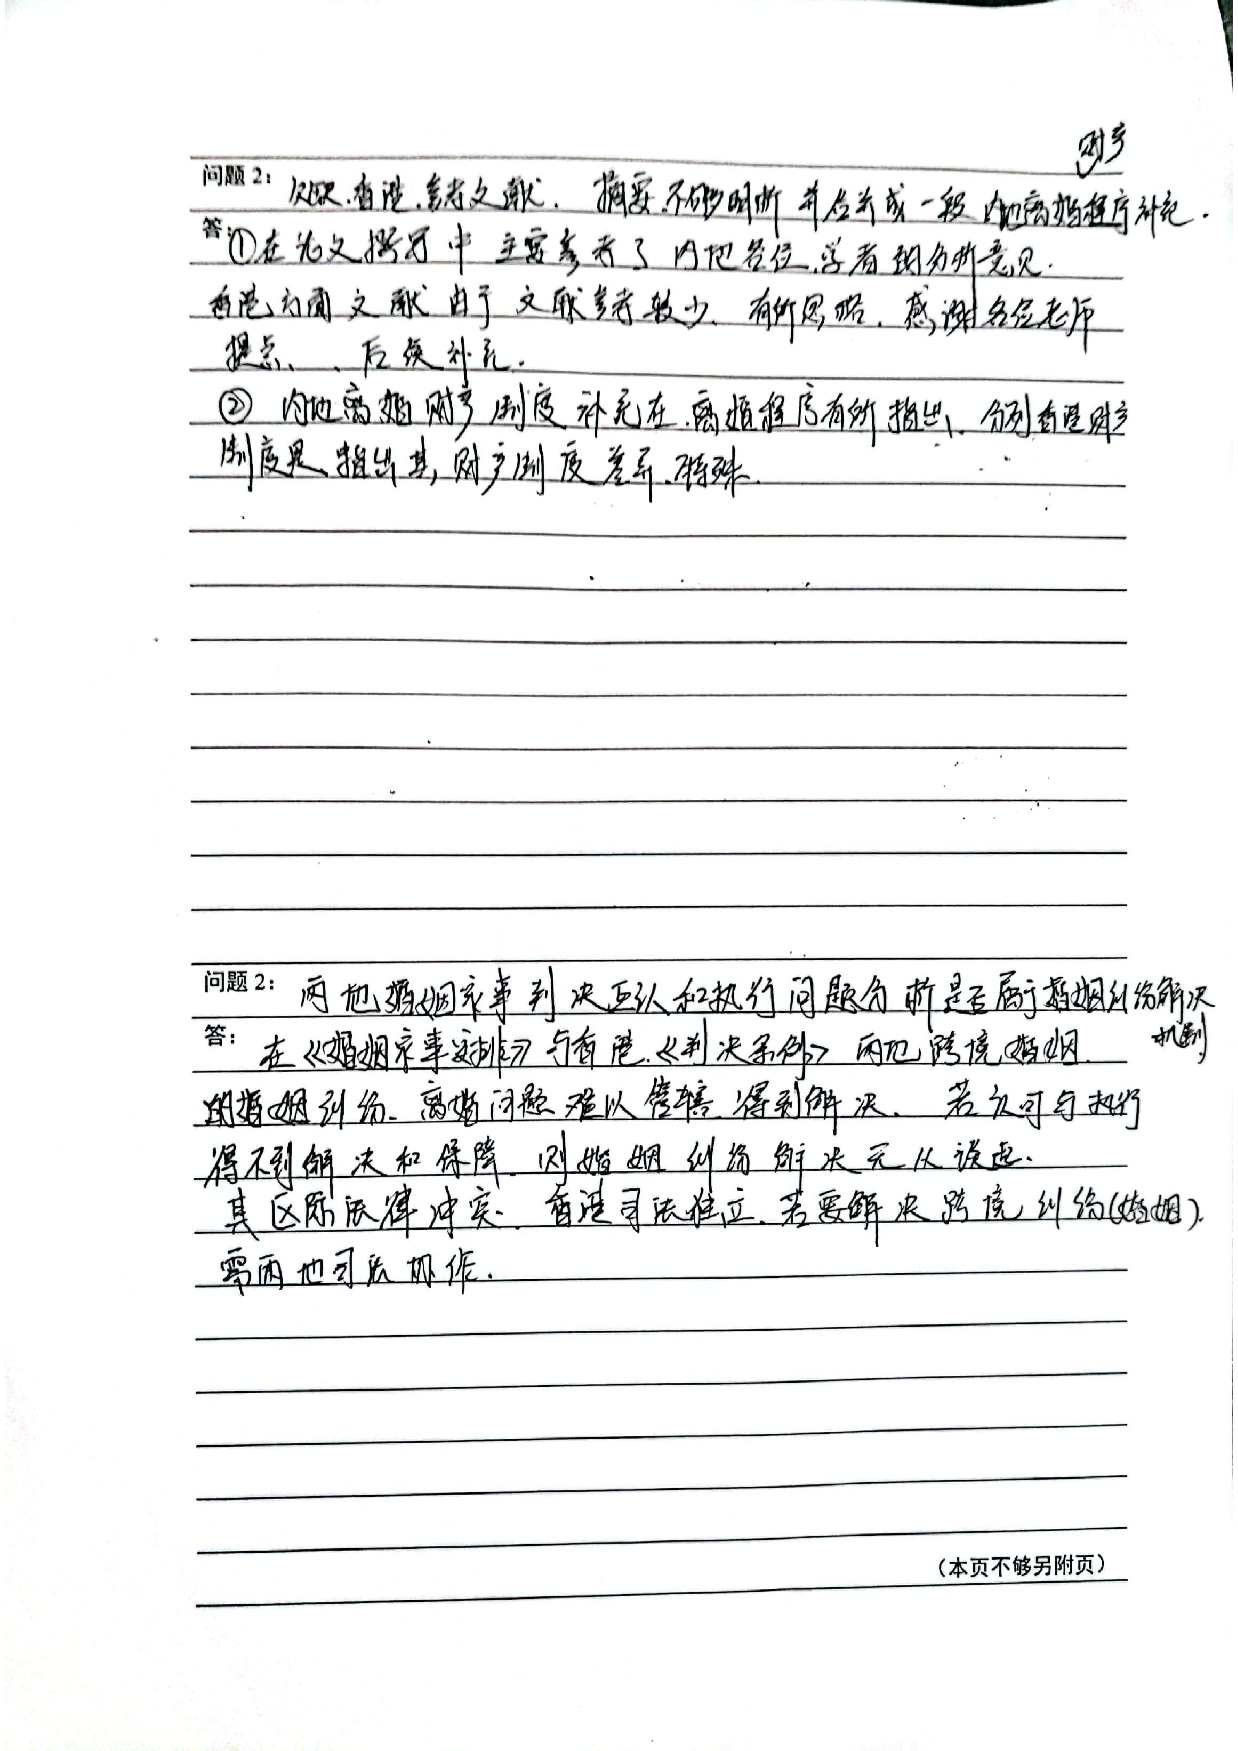 财产
问题2： 欠缺.香港.参考文献. 摘要不够明晰 并合并成一段 内地离婚程序补充.
答：①在论文撰写中 主要参考了内地各位.学者的分析意见.
香港方面文献由于文献参考较少、有所忽略. 感谢各位老师
提点、. 后续补充.
② 内地离婚财产制度补充在.离婚程序有所指出、分列香港财产
制度是指出其,财产制度差异.特殊.
问题2： 两地婚姻家事判决互认和执行问题分析是否属于婚姻纠纷解决
机制
答： 在《婚姻家事安排》与香港.《判决条例》 两地跨境婚姻
的婚姻纠纷、离婚问题难以管辖.得到解决. 若认可与执行
得不到解决和保障.则婚姻纠纷解决无从谈起.
其区际法律冲突. 香港司法独立.若要解决跨境纠纷(婚姻).
需两地司法协作.
（本页不够另附页）